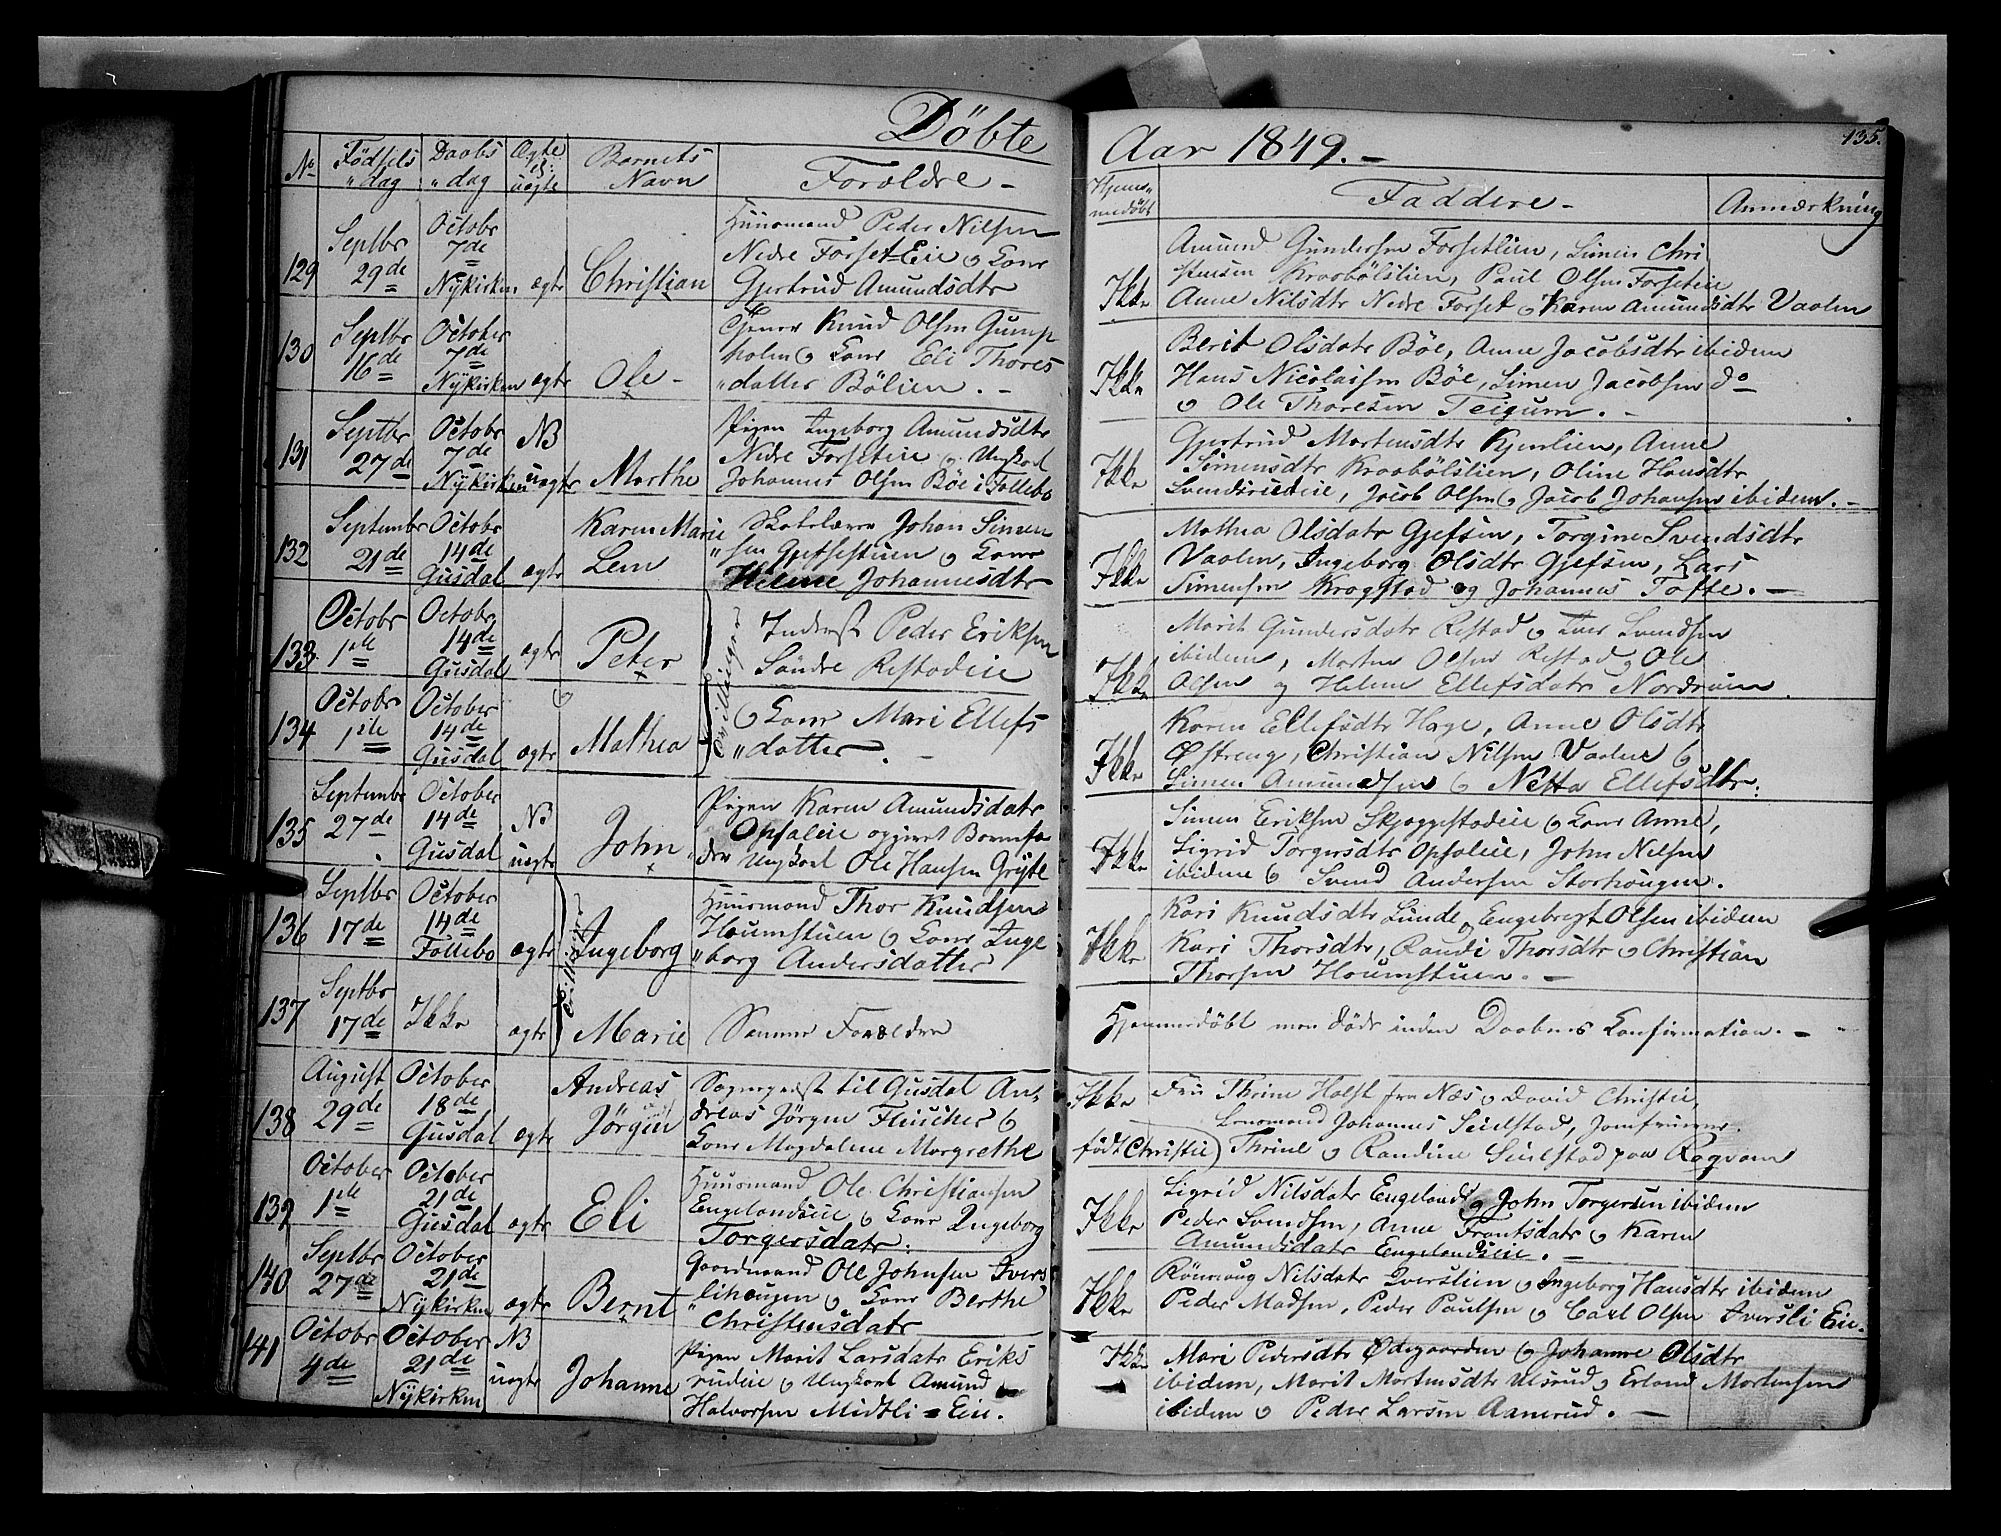 Döbte
Aar 1849.-
135.
No
Födsels
"dag
Daabs
"dag
Ægte
el.
uægte
Barnets
Navn
Forældre -
Hjem=
medöbt
Faddere -
Anmærkning
129
Septbr
29de
Octobr
7de
Nÿkirken
ægte
Christian
Huusmand Peder Nilsen
Nedre Forset-Eie o Kone
Gjertrud Amundsdtr
Ikke
Amund Gundersen Forsetlien, Simen Chri
stensen Kraabölslien, Paul Olsen Forseteie
Anne Nilsdtr Nedre Forset o Karen Amundsdtr Vaalen
130
Septbr
16de
October
7de
Nÿkirken
ægte
Ole -
Tjener Knud Olsen Gump
holm o Kone Eli Thores
"datter Bölien. -
Ikke
Berit Olsdatr Böe, Anne Jacobsdtr ibidem
Hans Nicolaisen Böe, Simen Jacobsen do
o Ole Thoresen Teigum. -
131
Septbr
27de
Octobr
7de
Nÿkirken
NB
uægte
Marthe
Pigen Ingeborg Amundsdtr
Nedre Forseteie o Ungkarl
Johannes Olsen Böe i Follebo
Ikke
Gjertrud Mortensdtr Kjerlien, Anne
Simensdtr Kraabölslien, Oline Hansdtr
Svendsrudeie, Jacob Olsen o Jacob Johansen ibidem. -
132
Septembr
21de
Octobr
14de
Gusdal
ægte
Karen Marie
Lem
Skolelærer Johan Simen
"sen Gjefsestuen o Kone
Helene Johannesdtr
Ikke
Mathea Olsdatr Gjefsen, Torgine Svendsdtr
Vaalen, Ingeborg Olsdtr Gjefsen, Lars
Simensen Krogstad og Johannes Tofte. -
133
Octobr
1ste
Octobr
14de
Gusdal
ægte
Peter
Inderst Peder Eriksen
Söndre Restadeie
Ikke
Marit Gundersdatr Restad o Iver Svendsen
ibidem, Morten Olsen Restad o Ole
Olsen og Helene Ellefsdatr Nordrum.
134
Octobr
1ste
October
14de
Gusdal
ægte
Mathea
o Kone Mari Ellefs
"datter. -
Ikke
Karen Ellefsdtr Hage, Anne Olsdtr
Östreng, Christian Nilsen Vaalen o
Simen Amundsen o Netta Ellefsdtr.
135
Septembr
27de
October
14de
Gusdal
NB
uægte
John
Pigen Karen Amundsdatr
Opsaleie opgivet Barnefa
"der Ungkarl Ole Hansen Grÿte
Ikke
Simen Eriksen Skjæggestadeie o Kone Anne,
Sigrid Torgersdtr Opsaleie, John Nilsen
ibidem o Svend Andersen Storhougen.
136
Septbr
17de
October
14de
Follebo
ægte
Ingeborg
Huusmand Thor Knudsen
Houmstuen o Kone Inge
"borg Andersdatter
Ikke
Kari Knudsdtr Linde, Engebregt Olsen ibidem
Kari Thorsdtr, Randi Thorsdtr o Christian
Thorsen Houmstuen. -
137
Septbr
17de
Ikke
ægte
Marie
Samme Forældre
Hjemmedöbt men döde inden Daabens Confirmation. -
138
August
29de
October
18de
Gusdal
ægte
Andreas
Jörgen
Sognepræst til Gusdal An-
dreas Jörgen Fleischer o
Kone Magdalene Margrethe
Ikke
födt Christie)
Fru Thrine Holst fra Næs o David Christie,
Lensmand Johannes Seielstad, Jomfruerne
Thrine o Randine Seielstad paa Rogvam
139
October
1ste
October
21de
Gusdal
ægte
Eli
Huusmand Ole Christiansen
Engelandseie o Kone Ingeborg
Torgersdatr.
Ikke
Sigrid Nilsdatr Engeland og John Torgersen ibidem
Peder Svendsen, Anne Frantsdatr o Karen
Amundsdatr Engelandseie. -
140
Septbr
27de
October
21de
Nÿkirken
ægte
Bernt
Gaardmand Ole Johnsen Ivers
"lihaugen o Kone Berthe
Christensdatr
Ikke
Rönnaug Nilsdatr Iverslien o Ingeborg Hansdtr ibidem
Peder Madsen, Peder Paulsen o Carl Olsen Iversli Eie.
141
Octobr
4de
October
21de
Nÿkirken
NB
uægte
Johanne
Pigen Marit Larsdatr Eriks
rudeie o Ungkarl Amund
Halvorsen Midtli-Eie.
Ikke
Mari Pedersdtr Ödegaarden o Johanne Olsdtr
ibidem, Marit Mortensdtr Ulsrud, Erland Mortensen
ibidem o Peder Larsen Aanerud. -